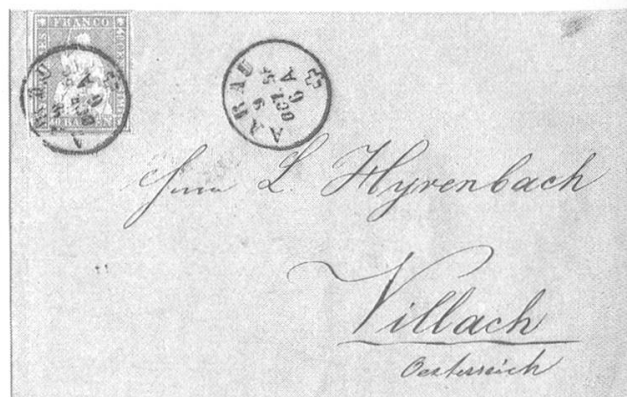 FRANCO
RAPPEN
AARAU
9
OCT
6
A
Herrn L. Hyrenbach
Villach
Oesterreich